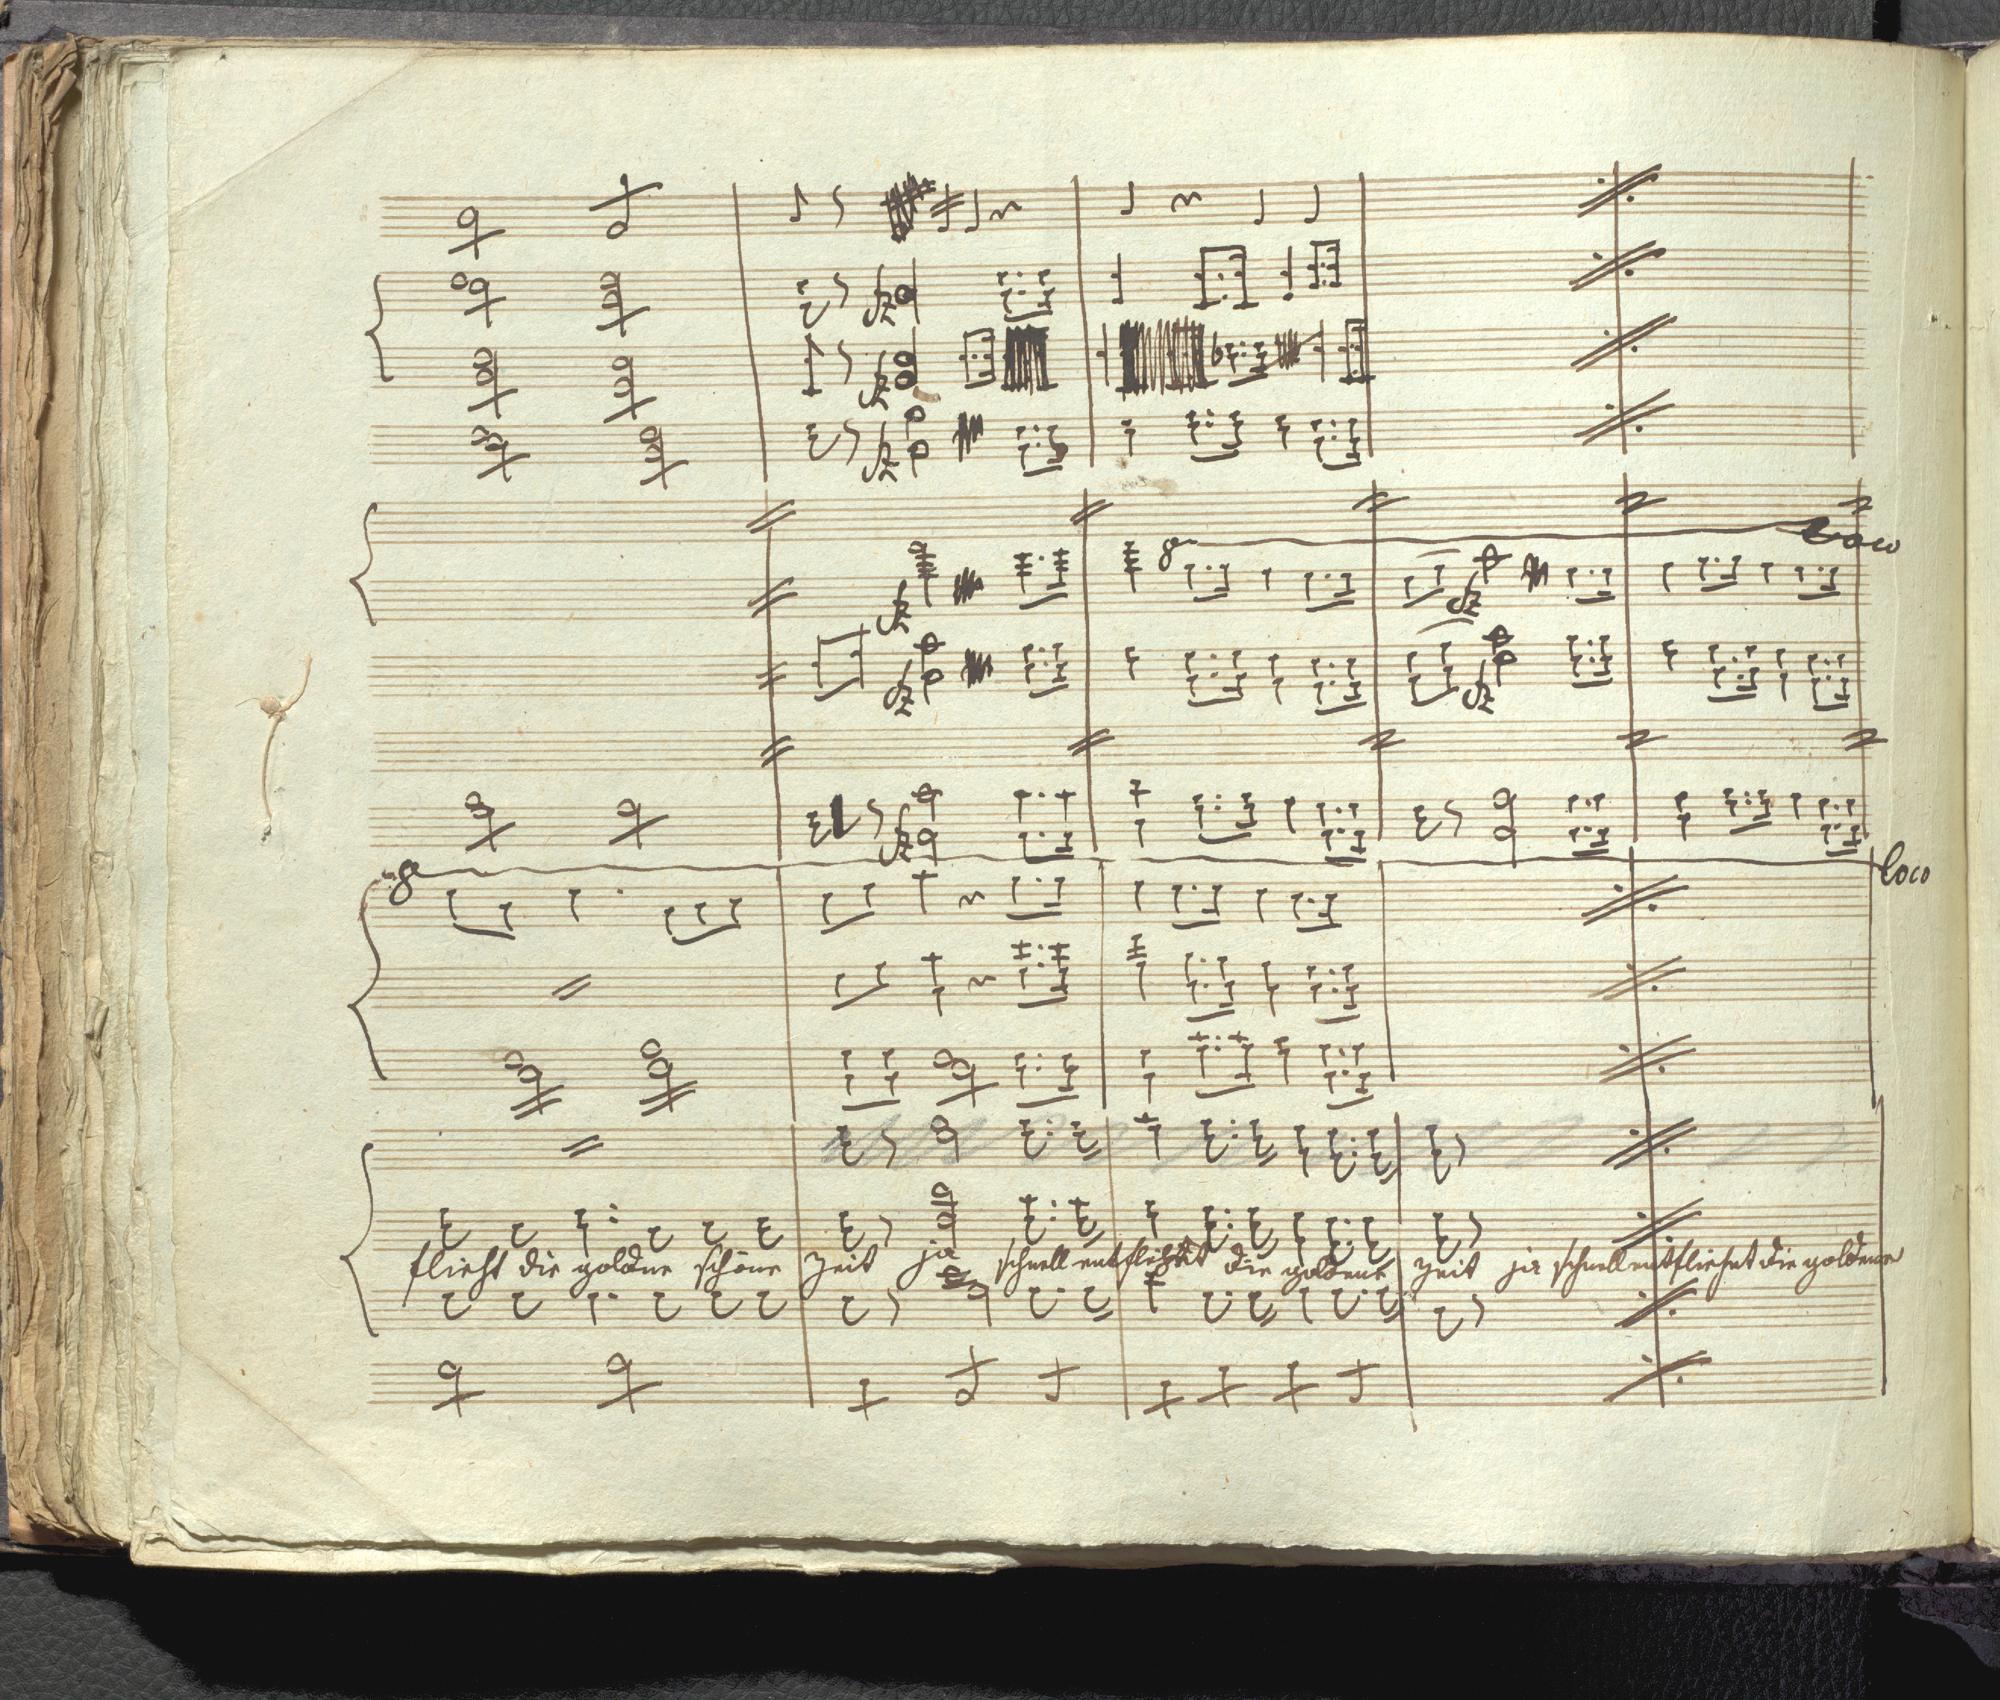 loco
8
loco
flieht die goldne schöne Zeit ja schnell entflieht die goldene Zeit ja schnell entfliehet die goldene